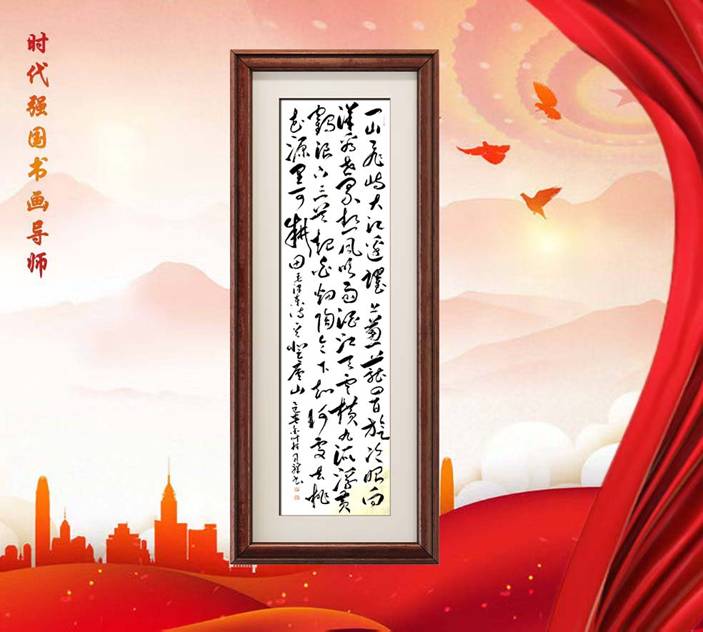 时代强国书画导师
一山飛峙大江邊躍上葱蘢四百旋冷眼向
洋看世界熱風吹雨洒江天雲横九派浮黄
鶴浪下三吴起白烟陶令不知何處去桃
花源里可耕田毛澤東詩登廬山